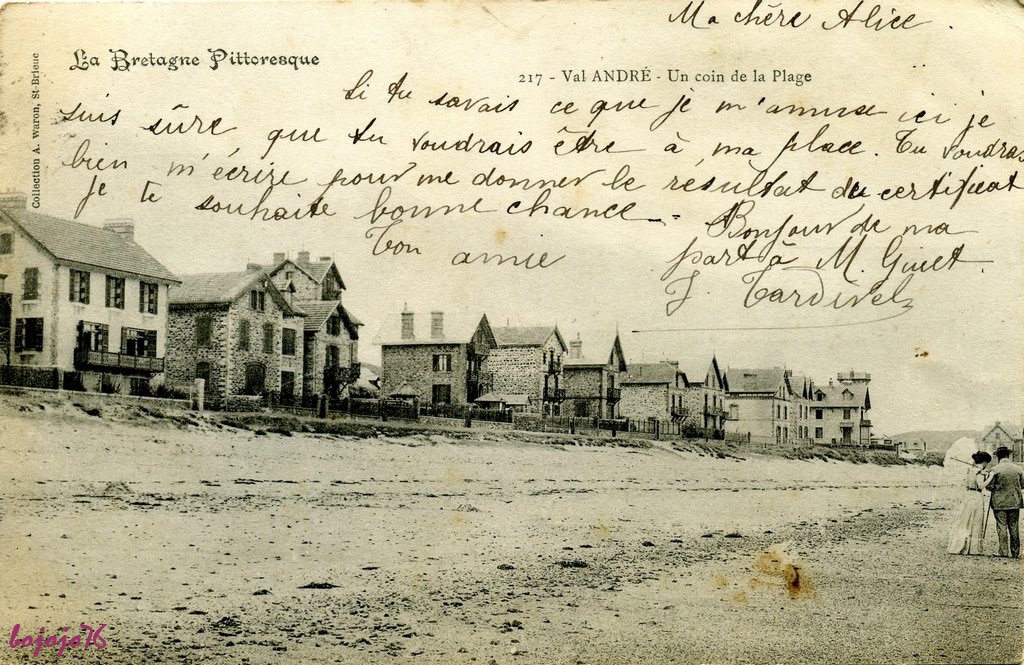 Ma chère Alice.
La Bretagne Pittoresque
217 - Val ANDRÉ - Un coin de la Plage
Collection A. Waron, St-Brieuc
Si tu savais ce que je m'amuse ici je
suis sûre que tu voudrais être à ma place. Tu voudras
bien m'écrire pour me donner le résultat du certificat
Je te souhaite bonne chance -
Ton amie
Bonjour de ma
part à M. Guiet.
J. Tardivel
bojojo76